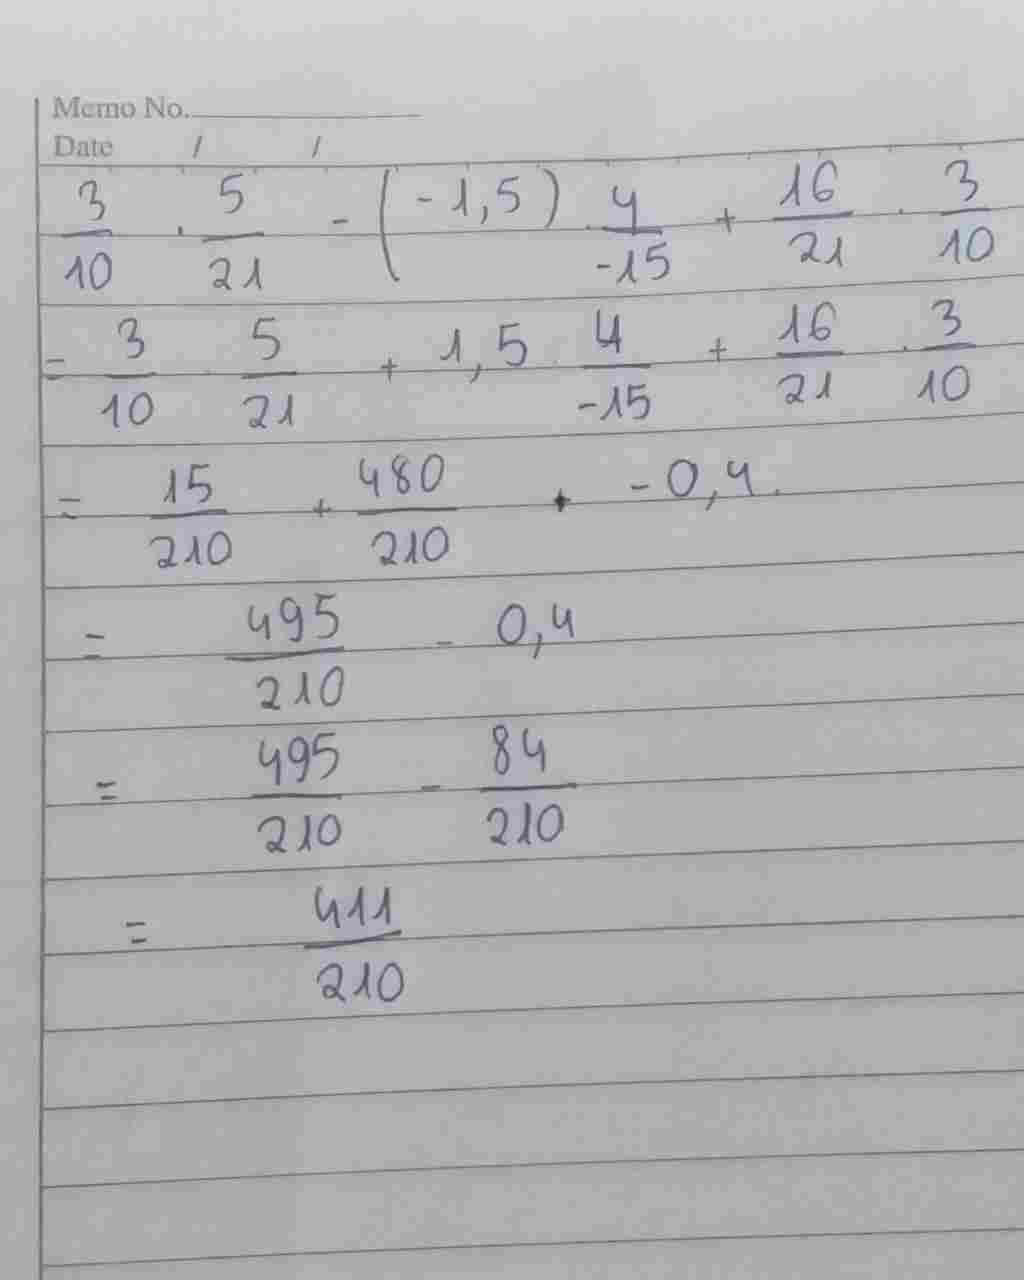 Memo No.
Date / /
3/10 . 5/21 - (-1,5) . 4/-15 + 16/21 . 3/10
= 3/10 . 5/21 + 1,5 . 4/-15 + 16/21 . 3/10
= 15/210 + 480/210 + -0,4.
= 495/210 - 0,4
= 495/210 - 84/210
= 411/210